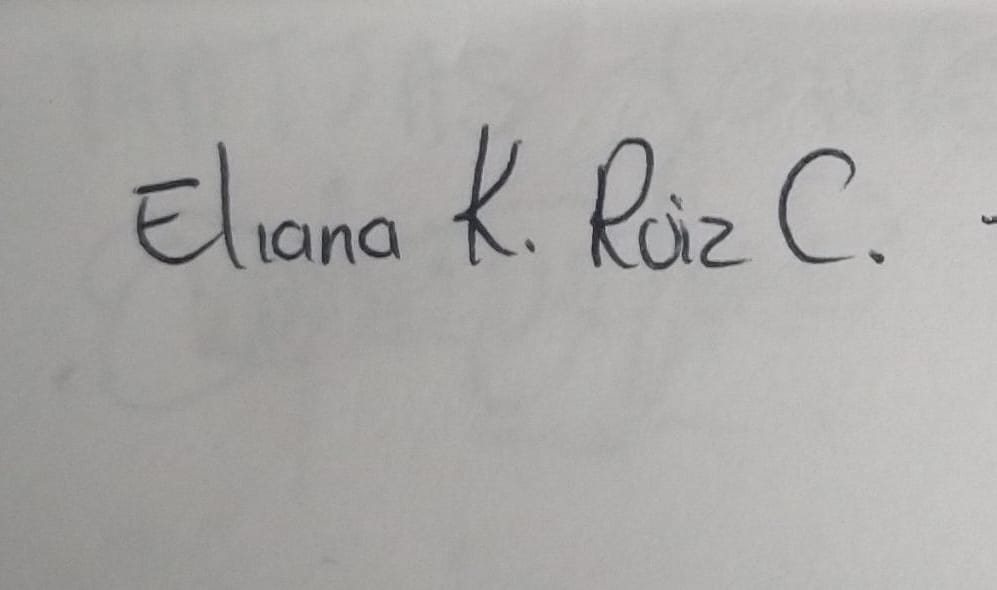 Eliana K. Ruiz C.